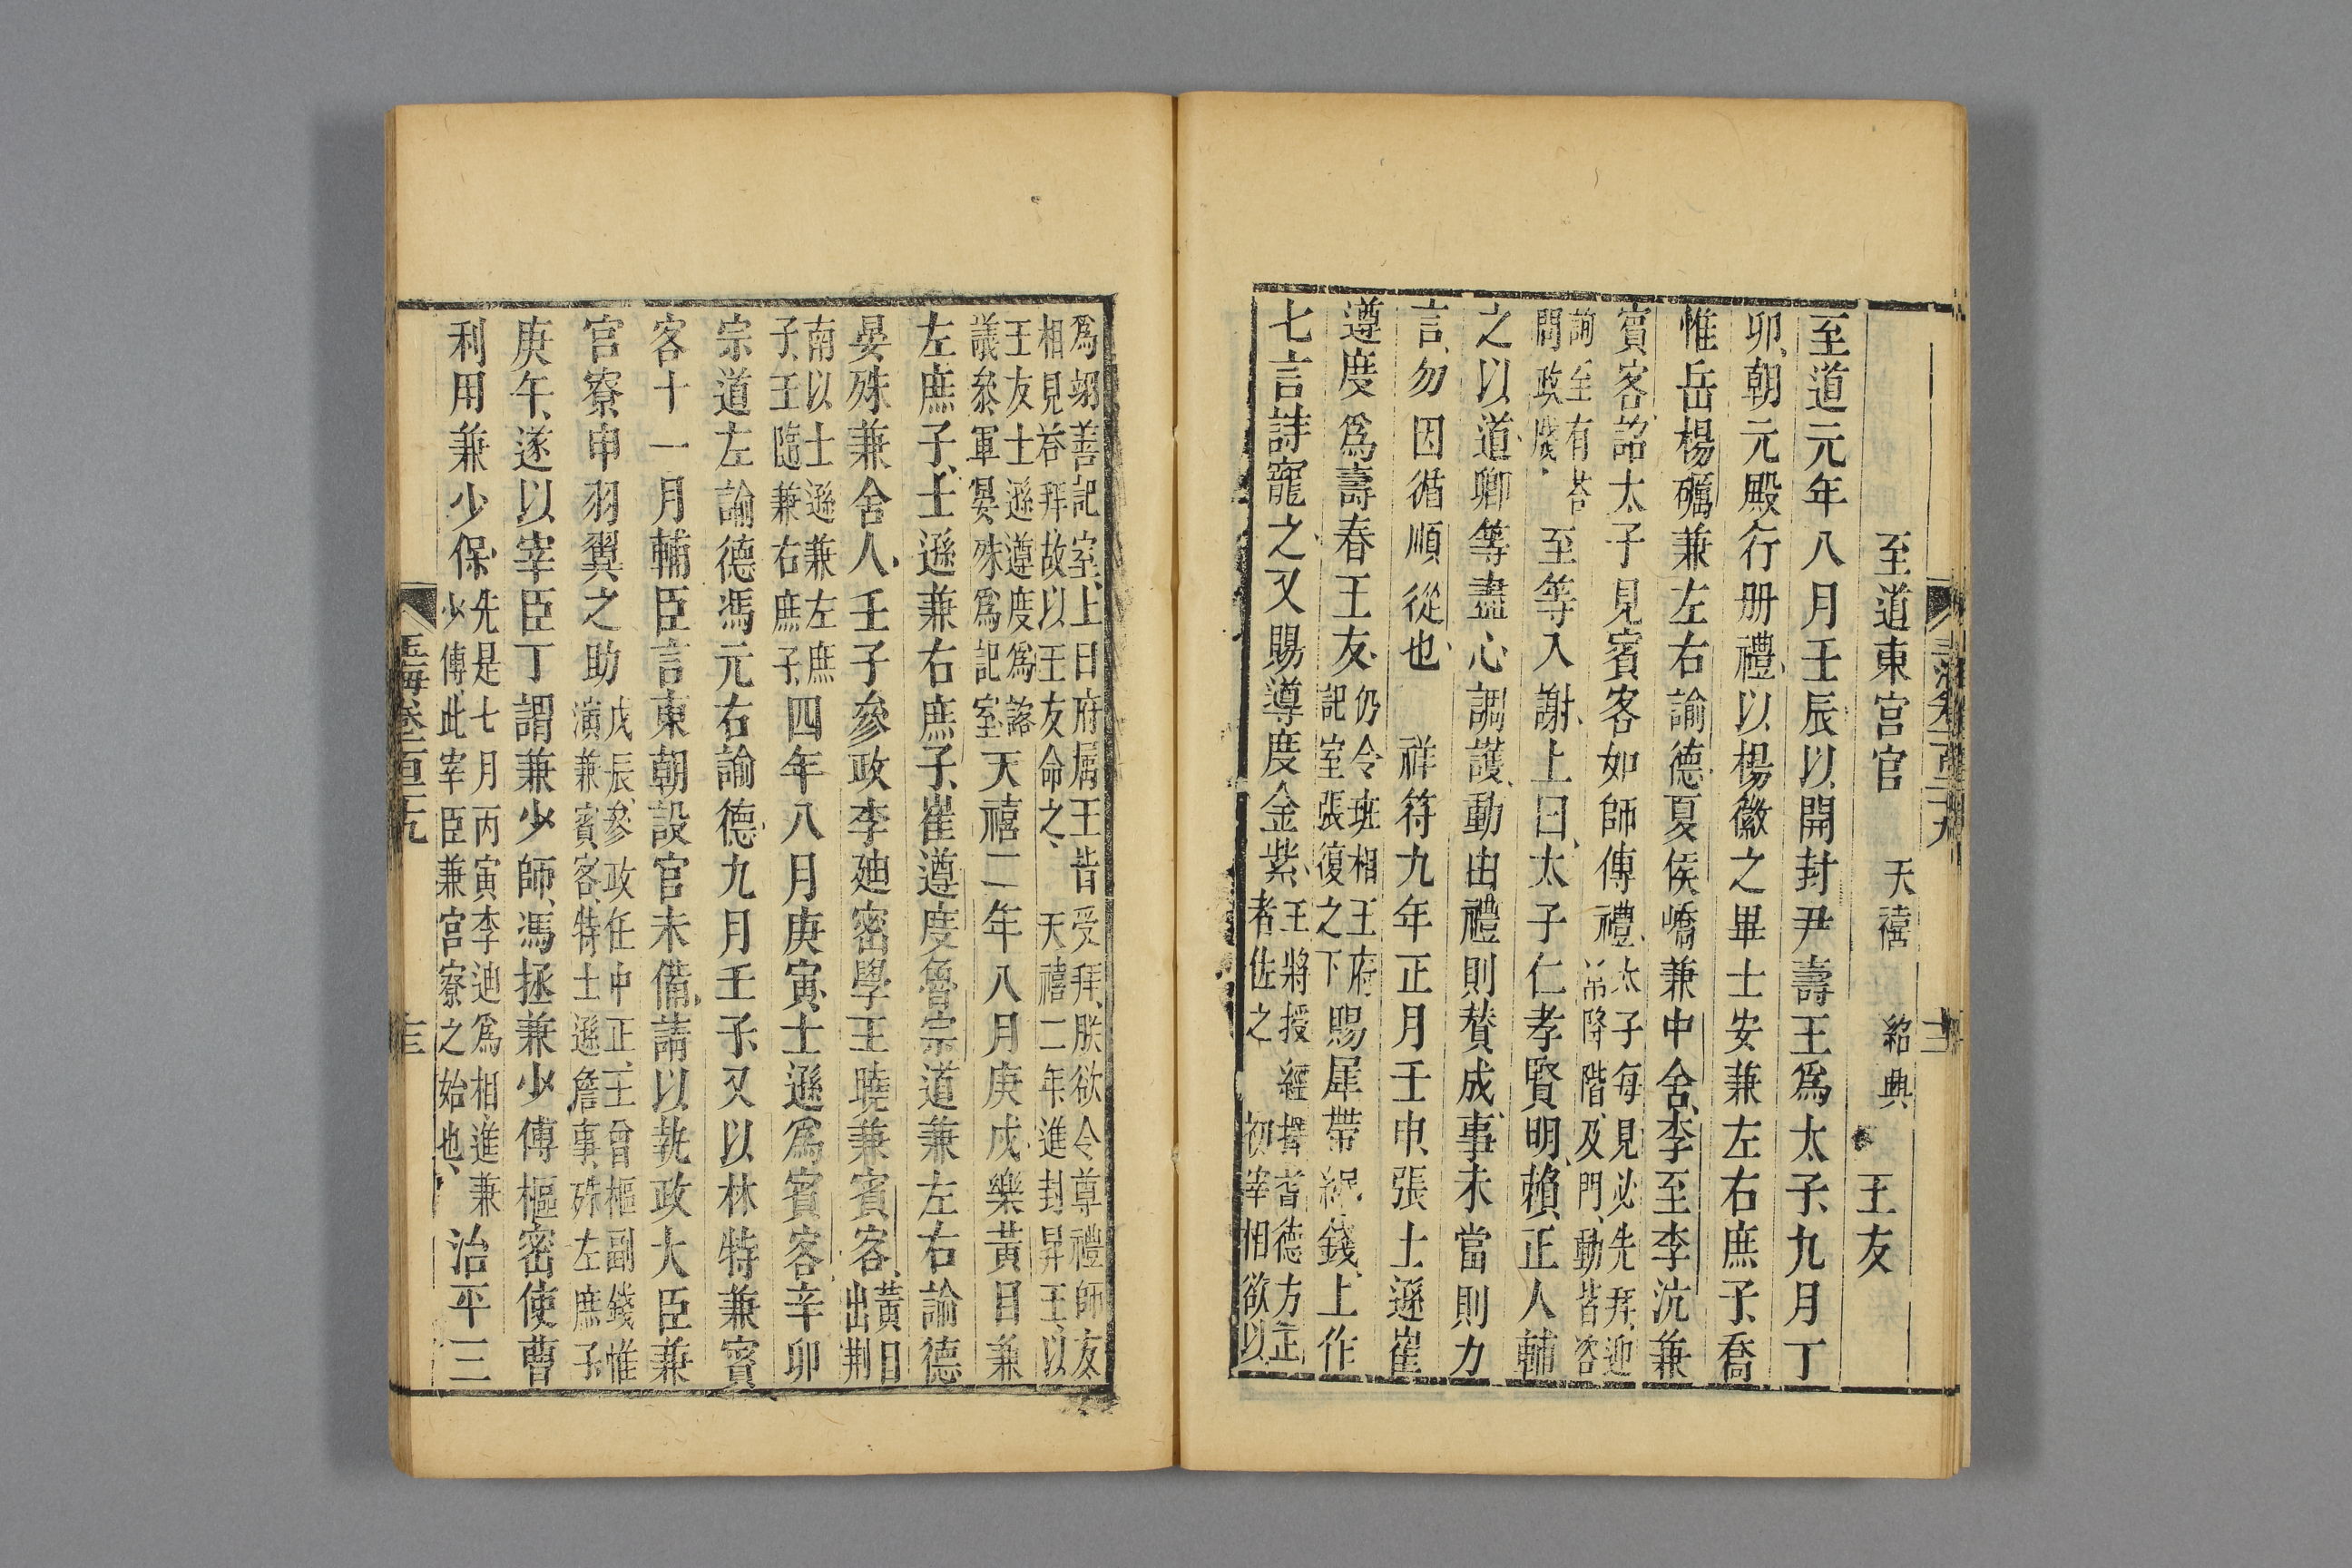 至道東宮官　天禧　紹興　王友
至道元年八月壬辰以開封尹壽王爲太子九月丁
卯朝元殿行册禮以楊徽之畢士安兼左右庶子喬
惟岳楊礪兼左右諭德夏侯嶠兼中舍李至李沆兼
賓客詔太子見賓客如師傅禮太子每見必先拜迎
常降階及門動皆咨
詢至有荅
問政牋至等入謝上曰太子仁孝賢明賴正人輔
之以道卿等盡心調護動由禮則賛成事未當則力
言勿因循順從也　祥符九年正月壬申張士遜崔
遵度爲壽春王友仍令班相王府
記室張復之下賜犀帶緡錢上作
七言詩寵之又賜導度金紫王將授經擇耆德方正
者佐之　初宰相欲以
爲翊善記室上曰府属王皆受拜朕欲令尊禮師友
相見荅拜故以王友命之　天禧二年進封昇王以
王友士遜遵度爲諮
議叅軍晏殊爲記室天禧二年八月庚戌樂黃目兼
左庶子士遜兼右庶子崔遵度魯宗道兼左右諭德
晏殊兼舍人壬子參政李廸密學王曉兼賓客黃目
出荆
南以士遜兼左庶
子王隨兼右庶子四年八月庚寅士遜爲賓客辛卯
宗道左諭德馮元右諭德九月壬子又以林特兼賓
客十一月輔臣言東朝設官未備請以執政大臣兼
官寮申羽翼之助戊辰參政任中正王曾樞副錢惟
演兼賓客特士遜詹事殊左庶子
庚午遂以宰臣丁謂兼少師馮拯兼少傅樞密使曹
利用兼少保先是七月丙寅李迪爲相進兼
少傅此宰臣兼宮寮之始也治平三
玉海卷一百二十九